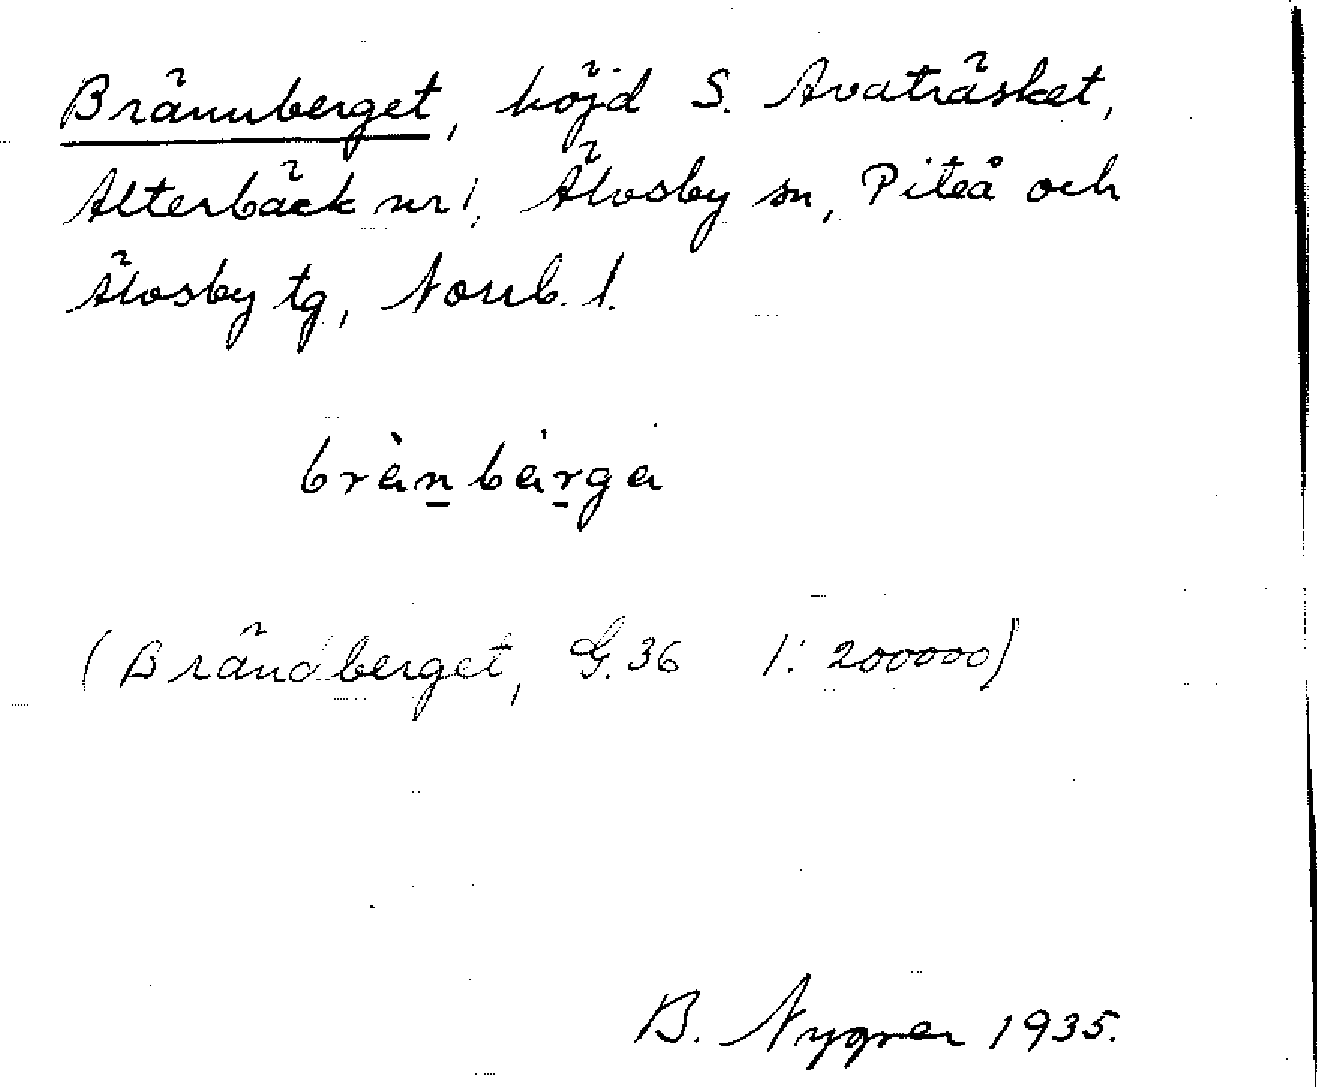 Brännberget, höjd S. Avaträsket,
Alterbäck nr 1, Älvsby sn, Piteå och
Älvsby tg, Norrb. l.
bràn bárga
(Brändberget, G. 36 1: 200000)
B. Nygren 1935.